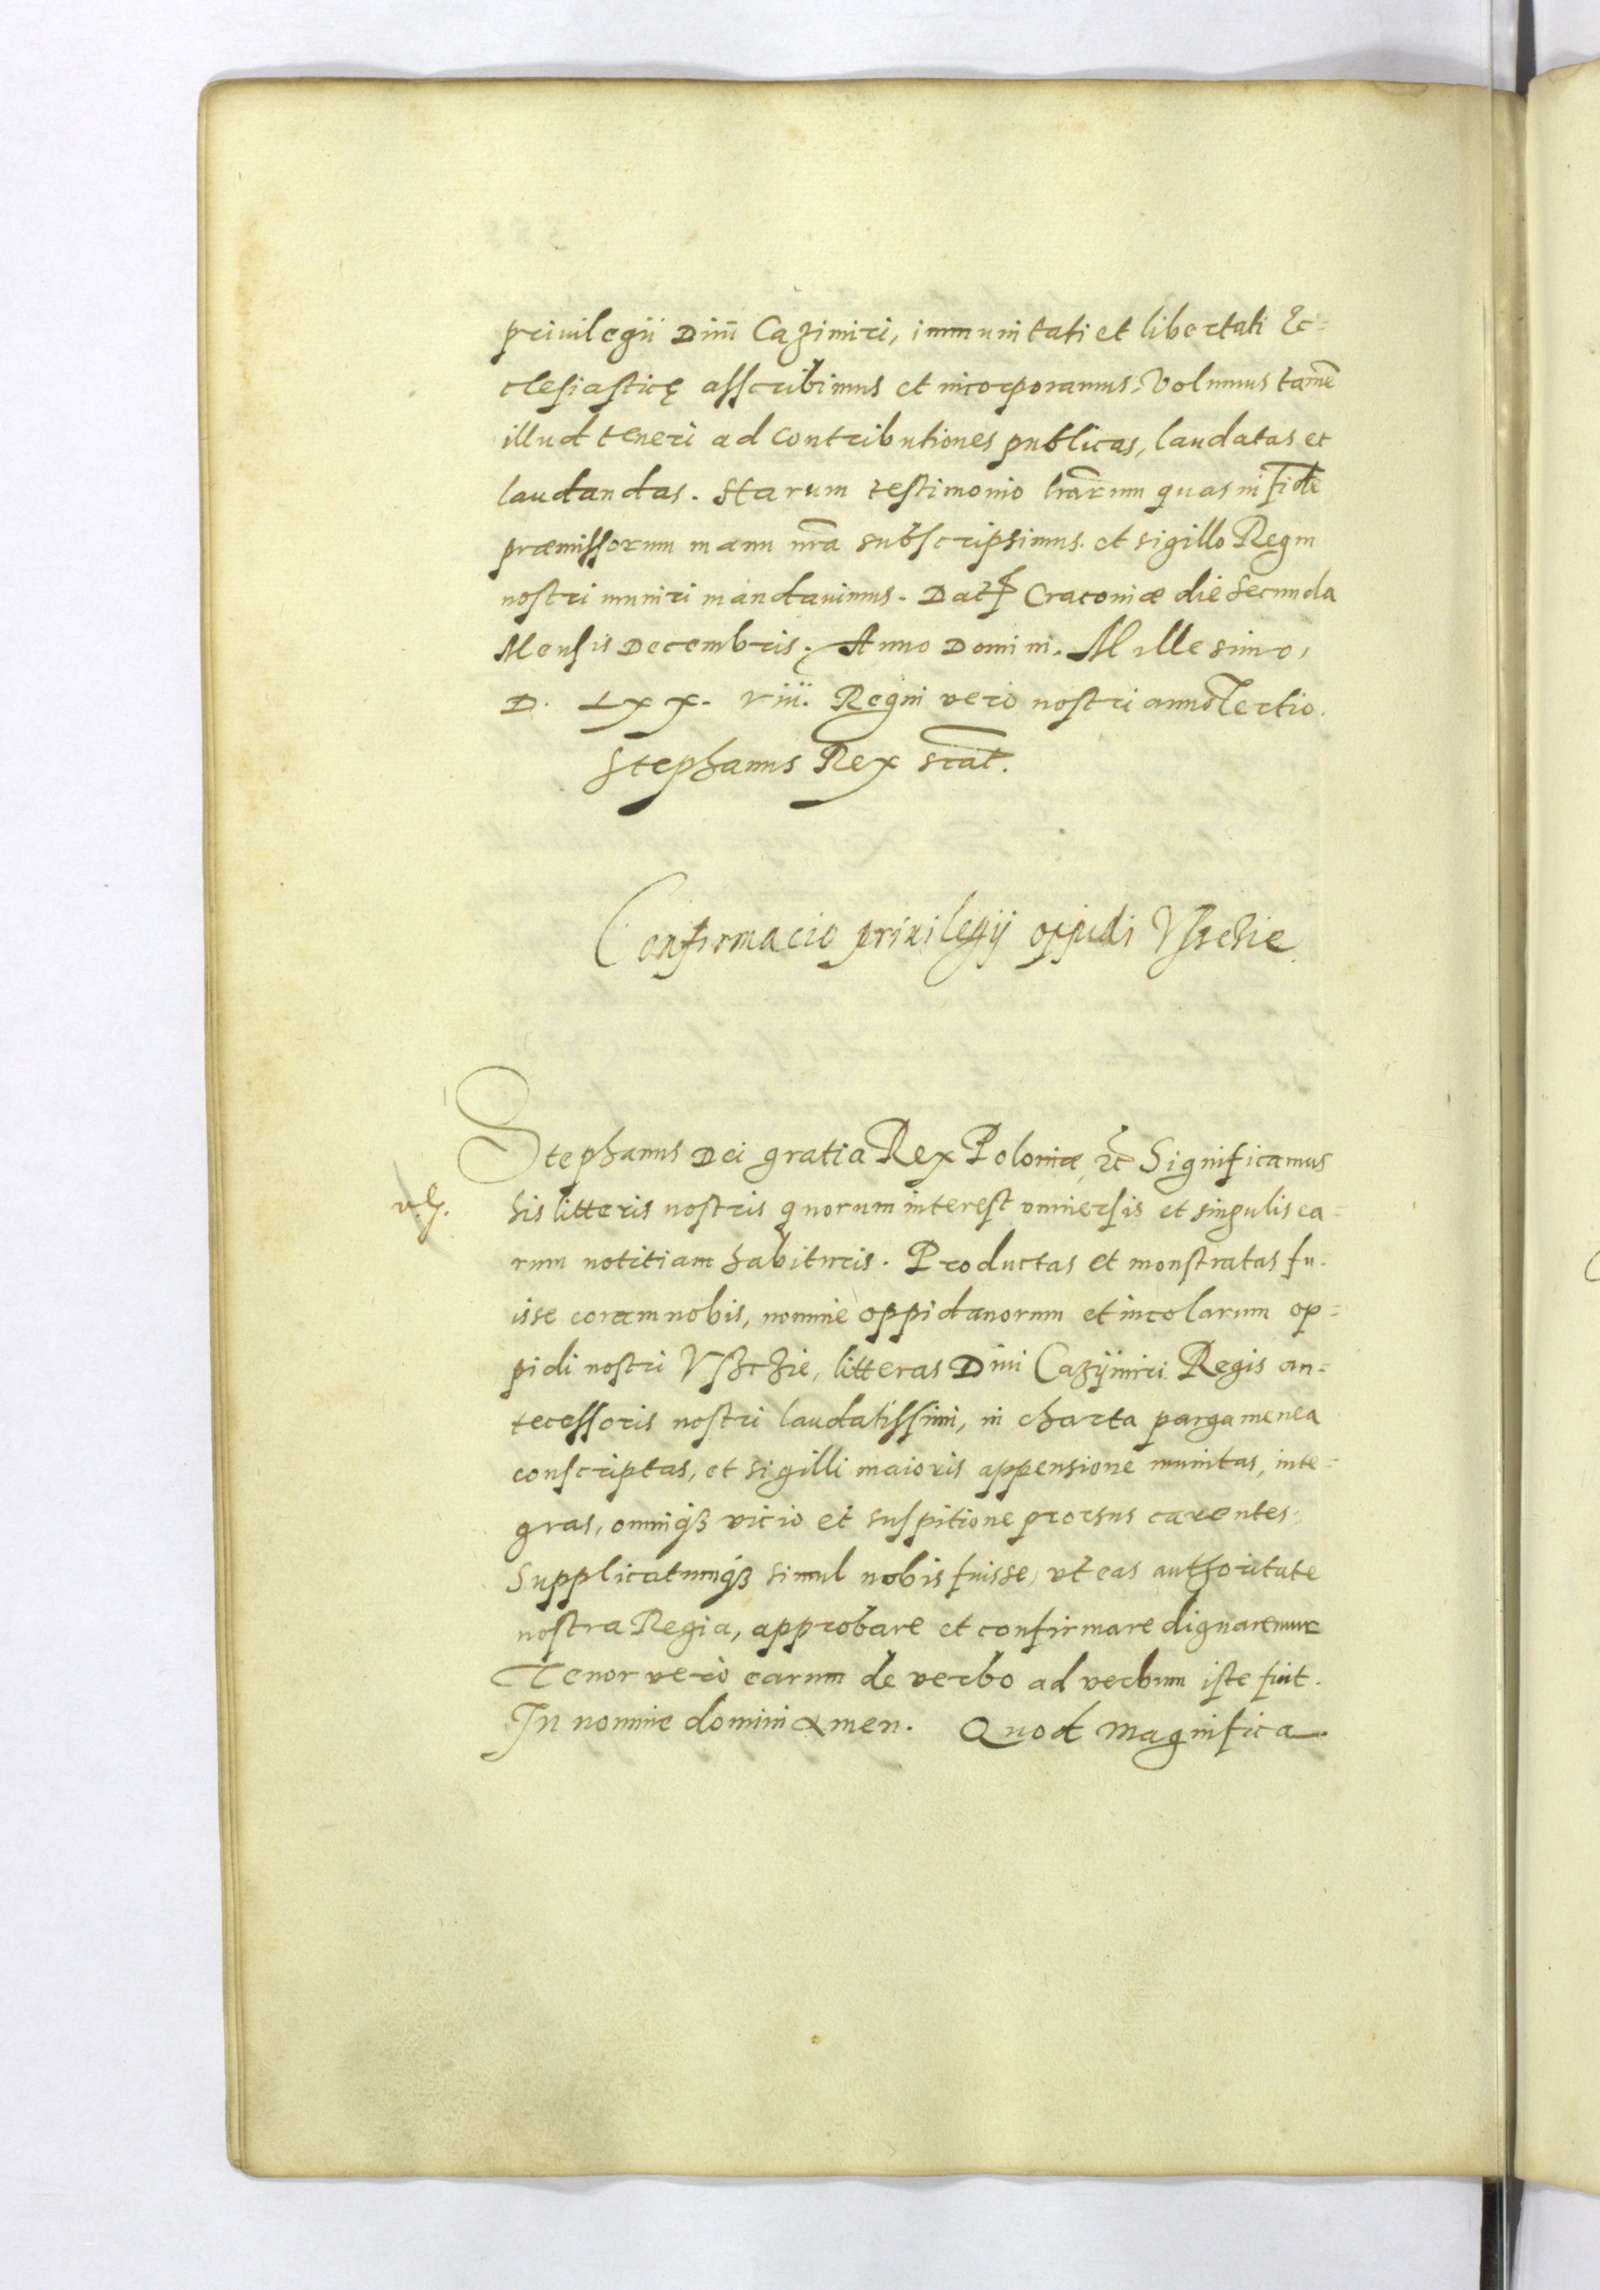 privilegii Divi Cazimiri, immunitati et libertati Ec=
clesiasticę asscribimus et incorporamus, volumus tamē
illud teneri ad contributiones publicas, laudatas et
laudandas. Harum testimonio lrarum quas in fidē
præmissorum manu nra subscripsimus et sigillo Regni
nostri muniri mandavimus. Dat Cracoviæ die secunda
Mensis Decembris, Anno Domini. Millesimo,
D. Lxx. viii. Regni vero nostri anno Tertio.
Stephanus Rex scat.
Confirmacio privilegij oppidi Vsczie
Stephanus Dei gratia Rex Poloniæ, etc Significamus
his litteris nostris quorum interest universis et singulis ea=
rum notitiam habituris. Productas et monstratas fu=
isse coram nobis, nomine oppidanorum et incolarum op=
pidi nostri Vszczie, litteras Divi Cazijmiri Regis an=
tecessoris nostri laudatissimi, in charta pargamenea
conscriptas, et sigilli maioris appensione munitas, inte=
gras, omniqȝ vicio et suspitione prorsus carentes.
Supplicatumqȝ simul nobis fuisse, vt eas authoritate
nostra Regia, approbare et confirmare dignaremur
Tenor verò earum de verbo ad verbum iste fuit.
In nomine domini Amen. Quod magnifica